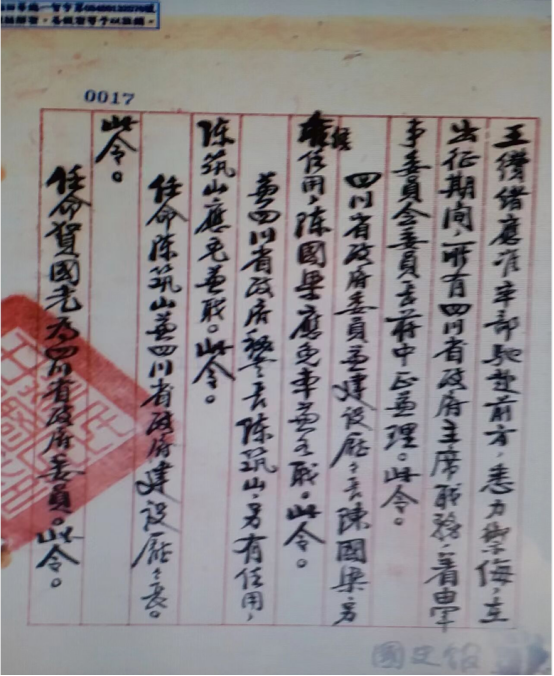 0017
王纘緒應准率部馳赴前方,悉力禦侮,在
出征期间,所有四川省政府主席职務,着由军
事委員会委員长蒋中正兼理。此令。
四川省政府委員兼建设廳々长陳國梁,另
有任用,陳國梁應免本兼各职。此令。
兼四川省政府秘书长陈筑山,另有任用,
陈筑山應免兼职。此令。
任命陈筑山兼四川省政府建设廳々长。
此令。
任命贺國光为四川省政府委員。此令。
國史館